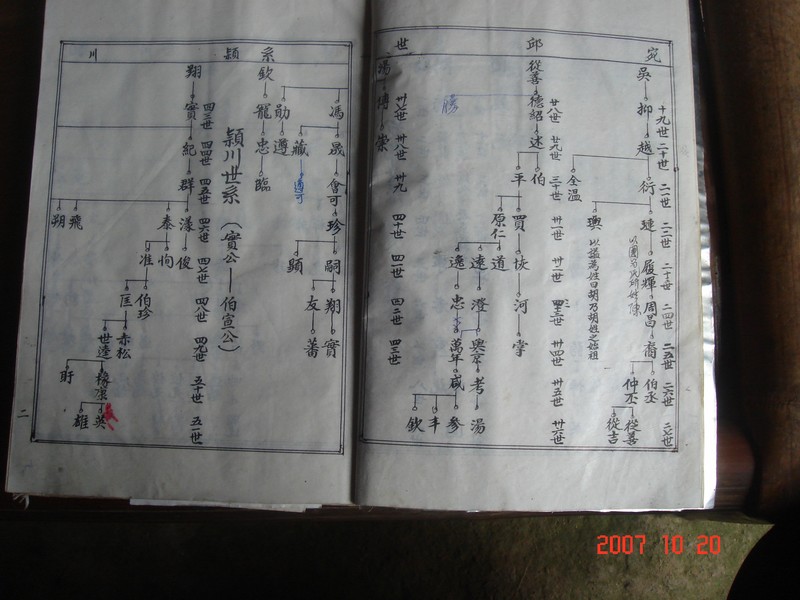 宛
邱
世
系
穎
川
十九世
二十世
二一世
二二世
二十三世
二四世
二五世
二六世
二七世
吳
抑
越
衍
璉
履輝
周昌
裔
伯丞
仲丞
從善
從吉
全温
璵
以謚為姓曰胡乃胡姓之始祖
從善
德紹
述
伯
平
勝
廿八世
廿九世
三十世
卅一世
卅二世
卅四世
卅五世
卅六世
買
恢
河
掌
原仁
道
達
逸
澄
忠
奥京
萬年
考
咸
湯
參
丰
欽
湯
崇
卅七世
卅八世
卅九
四十世
四一世
四二世
四三世
馮
晟
會可
珍
嗣
顕
翔
友
實
蕃
勛
遵
藏
遵可
欽
寵
忠
臨
穎川世系（實公——伯宣公）
翔
實
紀
群
四三世
四四世
四五世
四六世
四七世
四八世
四九世
五十世
五一世
泰
飛
朔
俊
恂
准
伯珍
匡
赤松
世逵
橡丞
盱
英
雄
二
2007 10 20